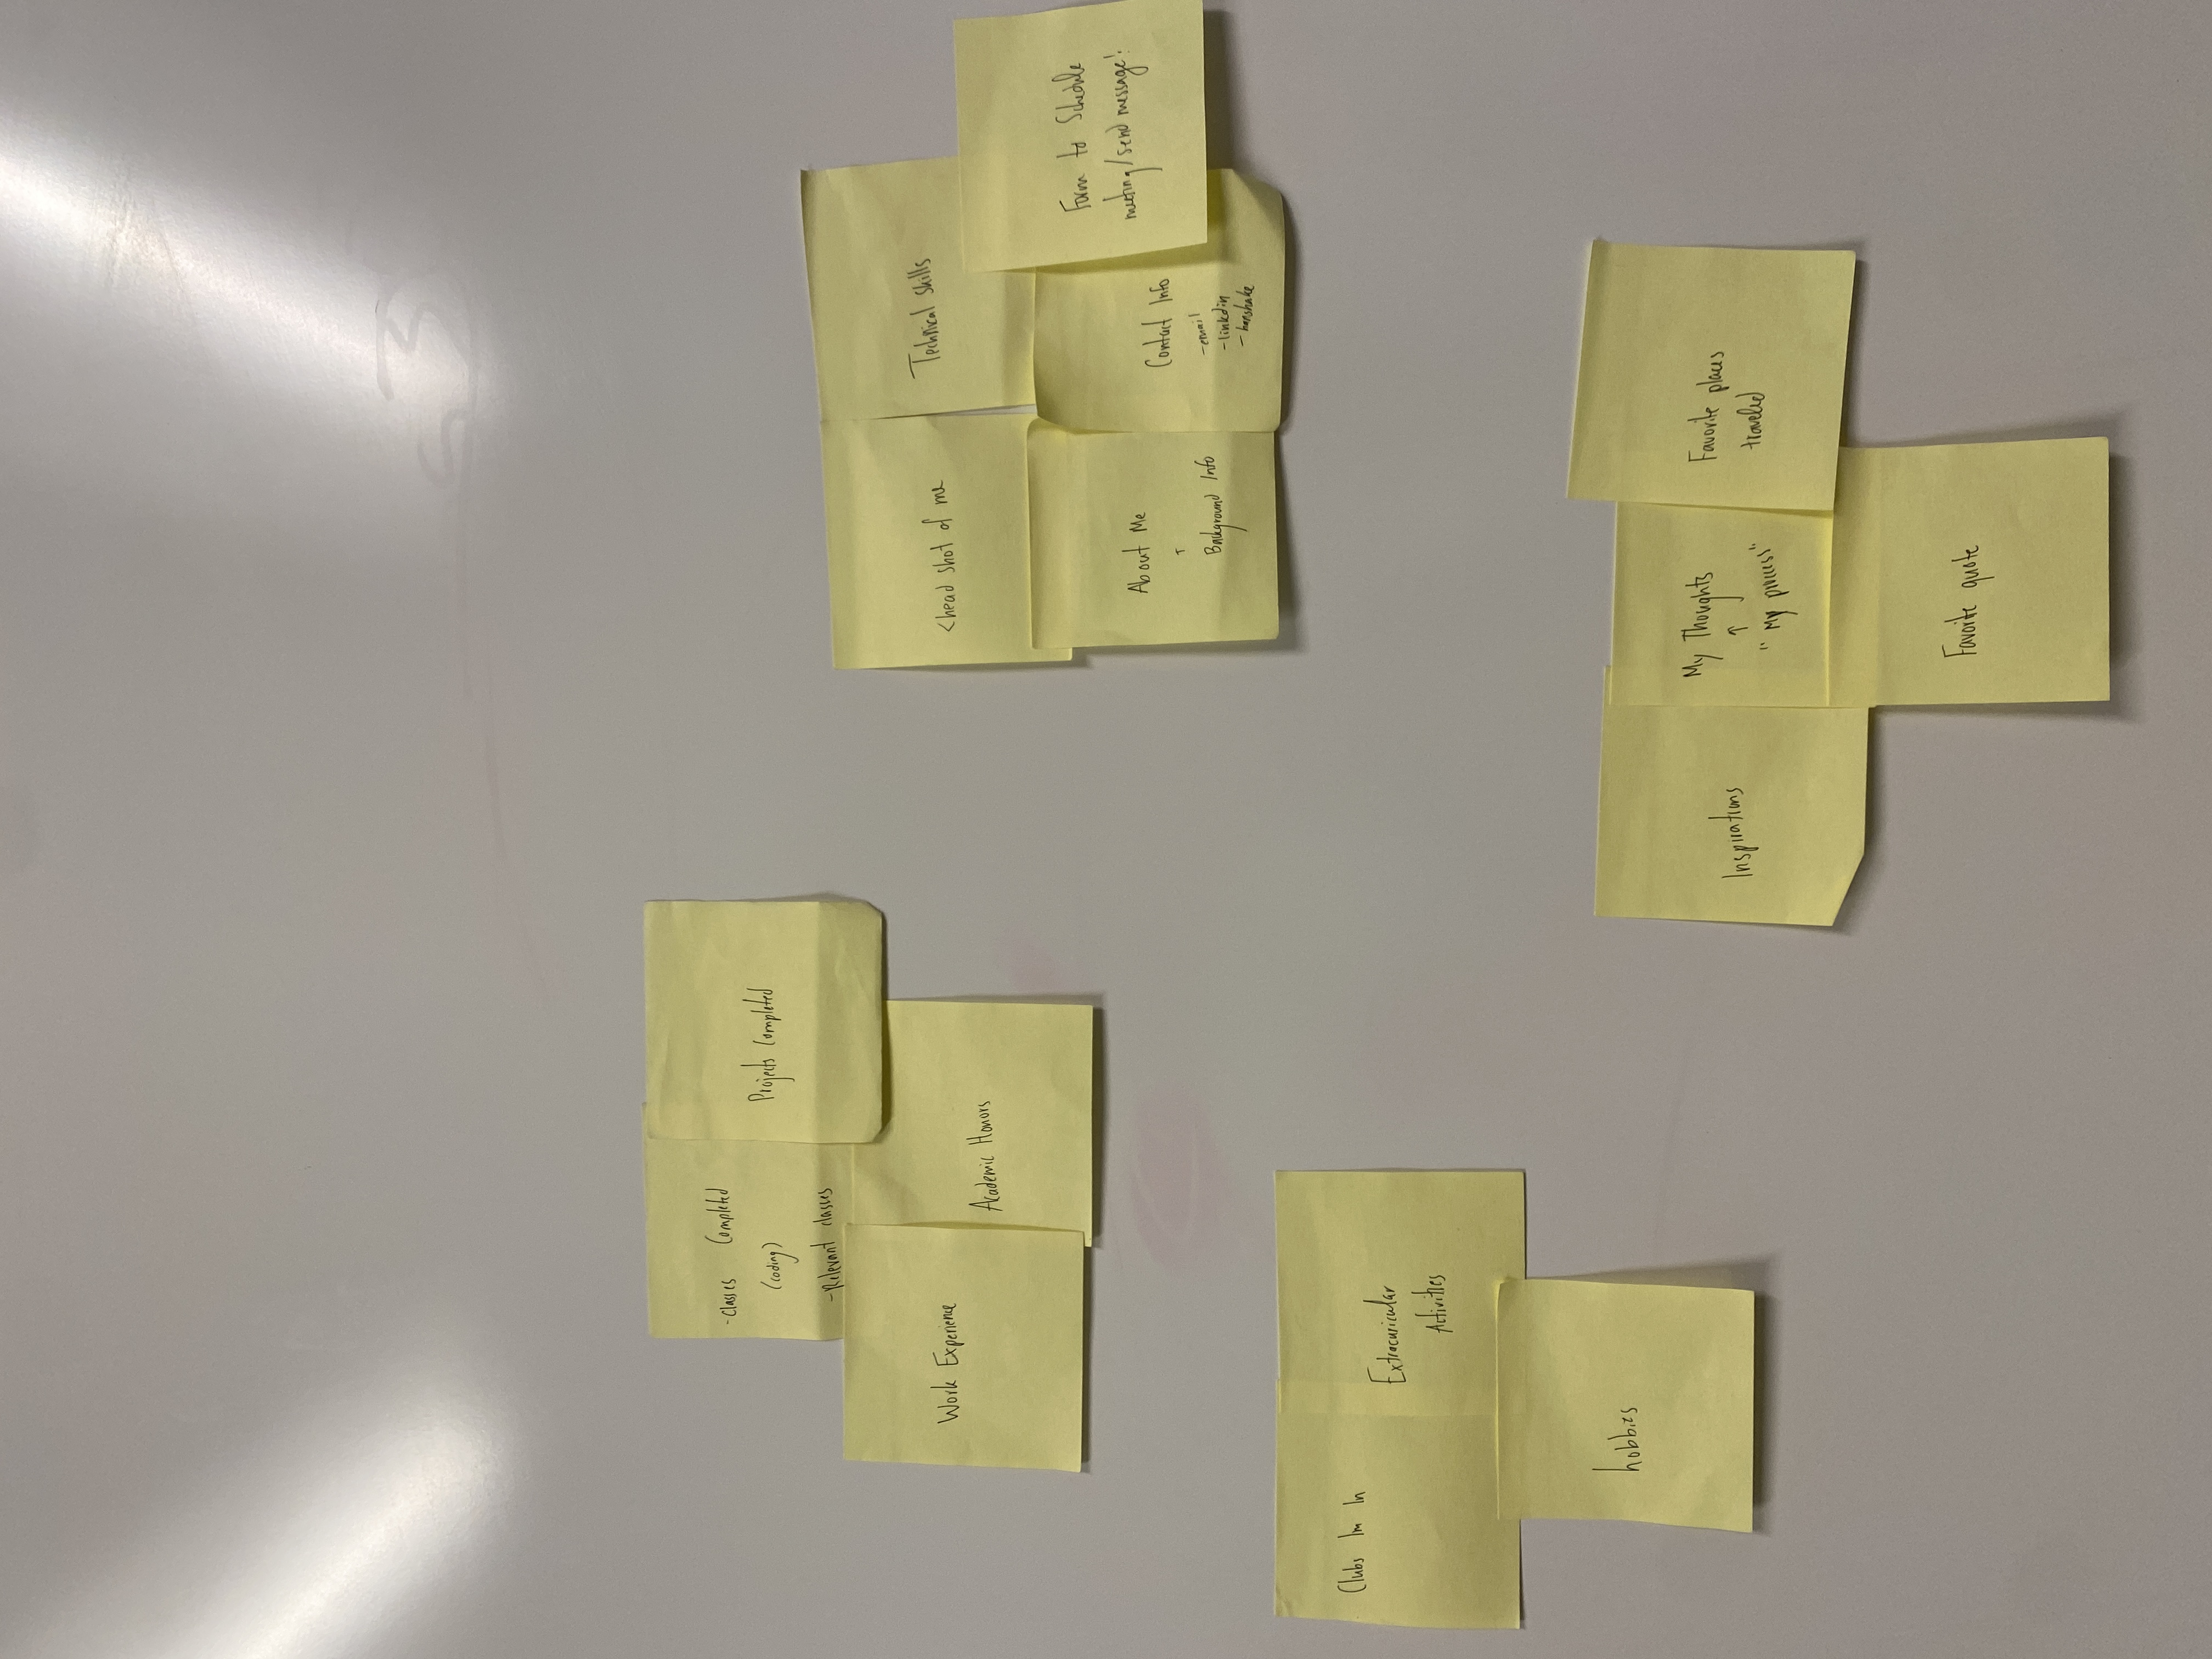 -Classes Completed
(coding)
-Relevant classes
Projects Completed
Work Experience
Academic Honors
<head shot of me
Technical skills
About Me
Background Info
Contact Info
-email
-linkdin
-hanshake
Form to Schedule
meeting/send message!
Clubs Im In
Extracuricular
Activities
hobbies
Inspirations
My Thoughts
↑
"My process"
Favorite places
traveled
Favorite quote